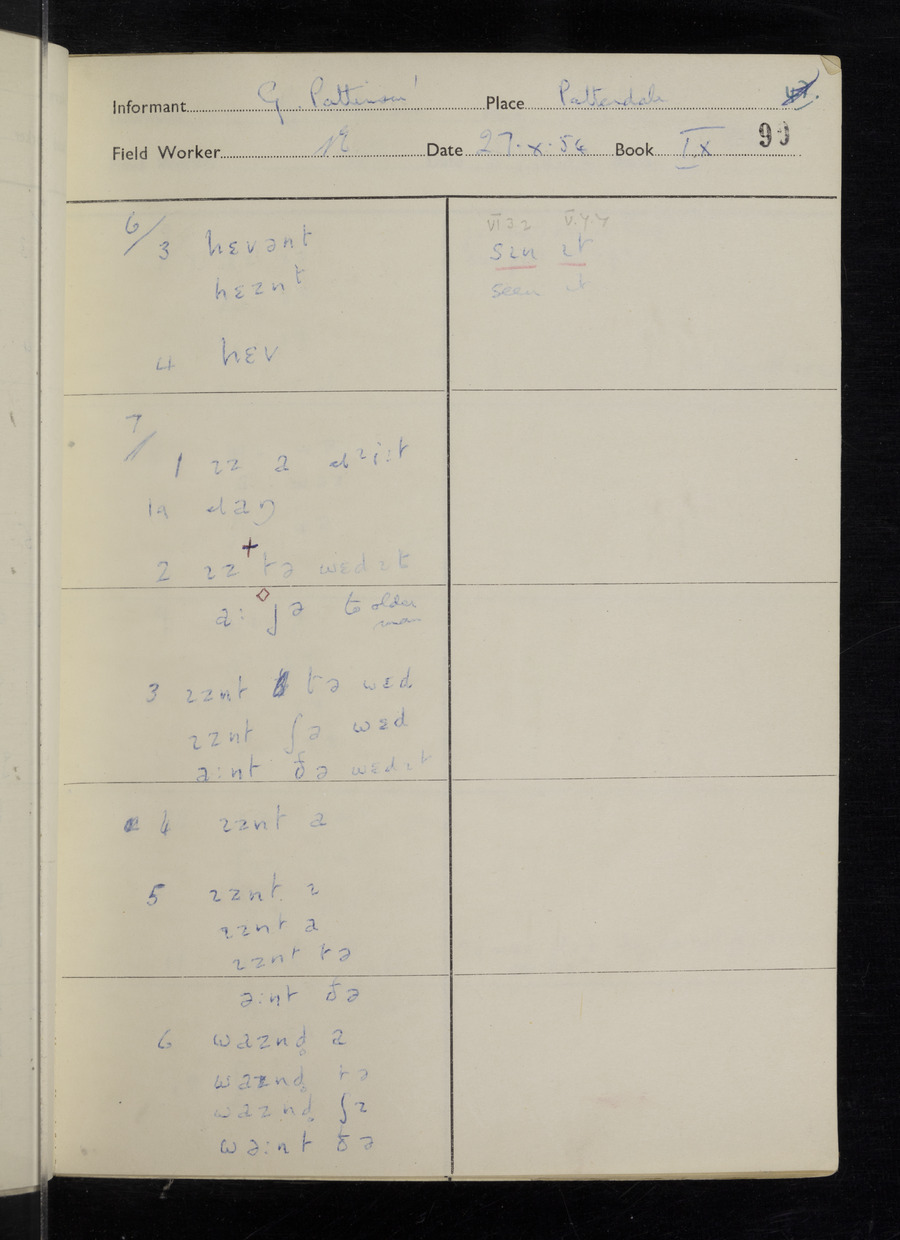 Informant G. Pattinson Place Patterdale
Field Worker Date 27.X.54 Book IX 99
6/
3 hɛvənt
hɛznt
4 hɛv
7/
1 ɪz a
1a
2 ɪz tə wɛdɪt
a: ʃə to older man
3 ɪznt tə wɛd
ɪznt ʃə wɛd
a:nt ðə wɛdɪt
4 ɪznt a
5 ɪznt ɪ
ɪznt a
ɪznt tə
a:nt ðə
6 waznd̥ a
waznd̥ tə
waznd̥ ʃɪ
wa:nt ðə
VI 3 2 V.4.4
sɪn ɪt
seen it